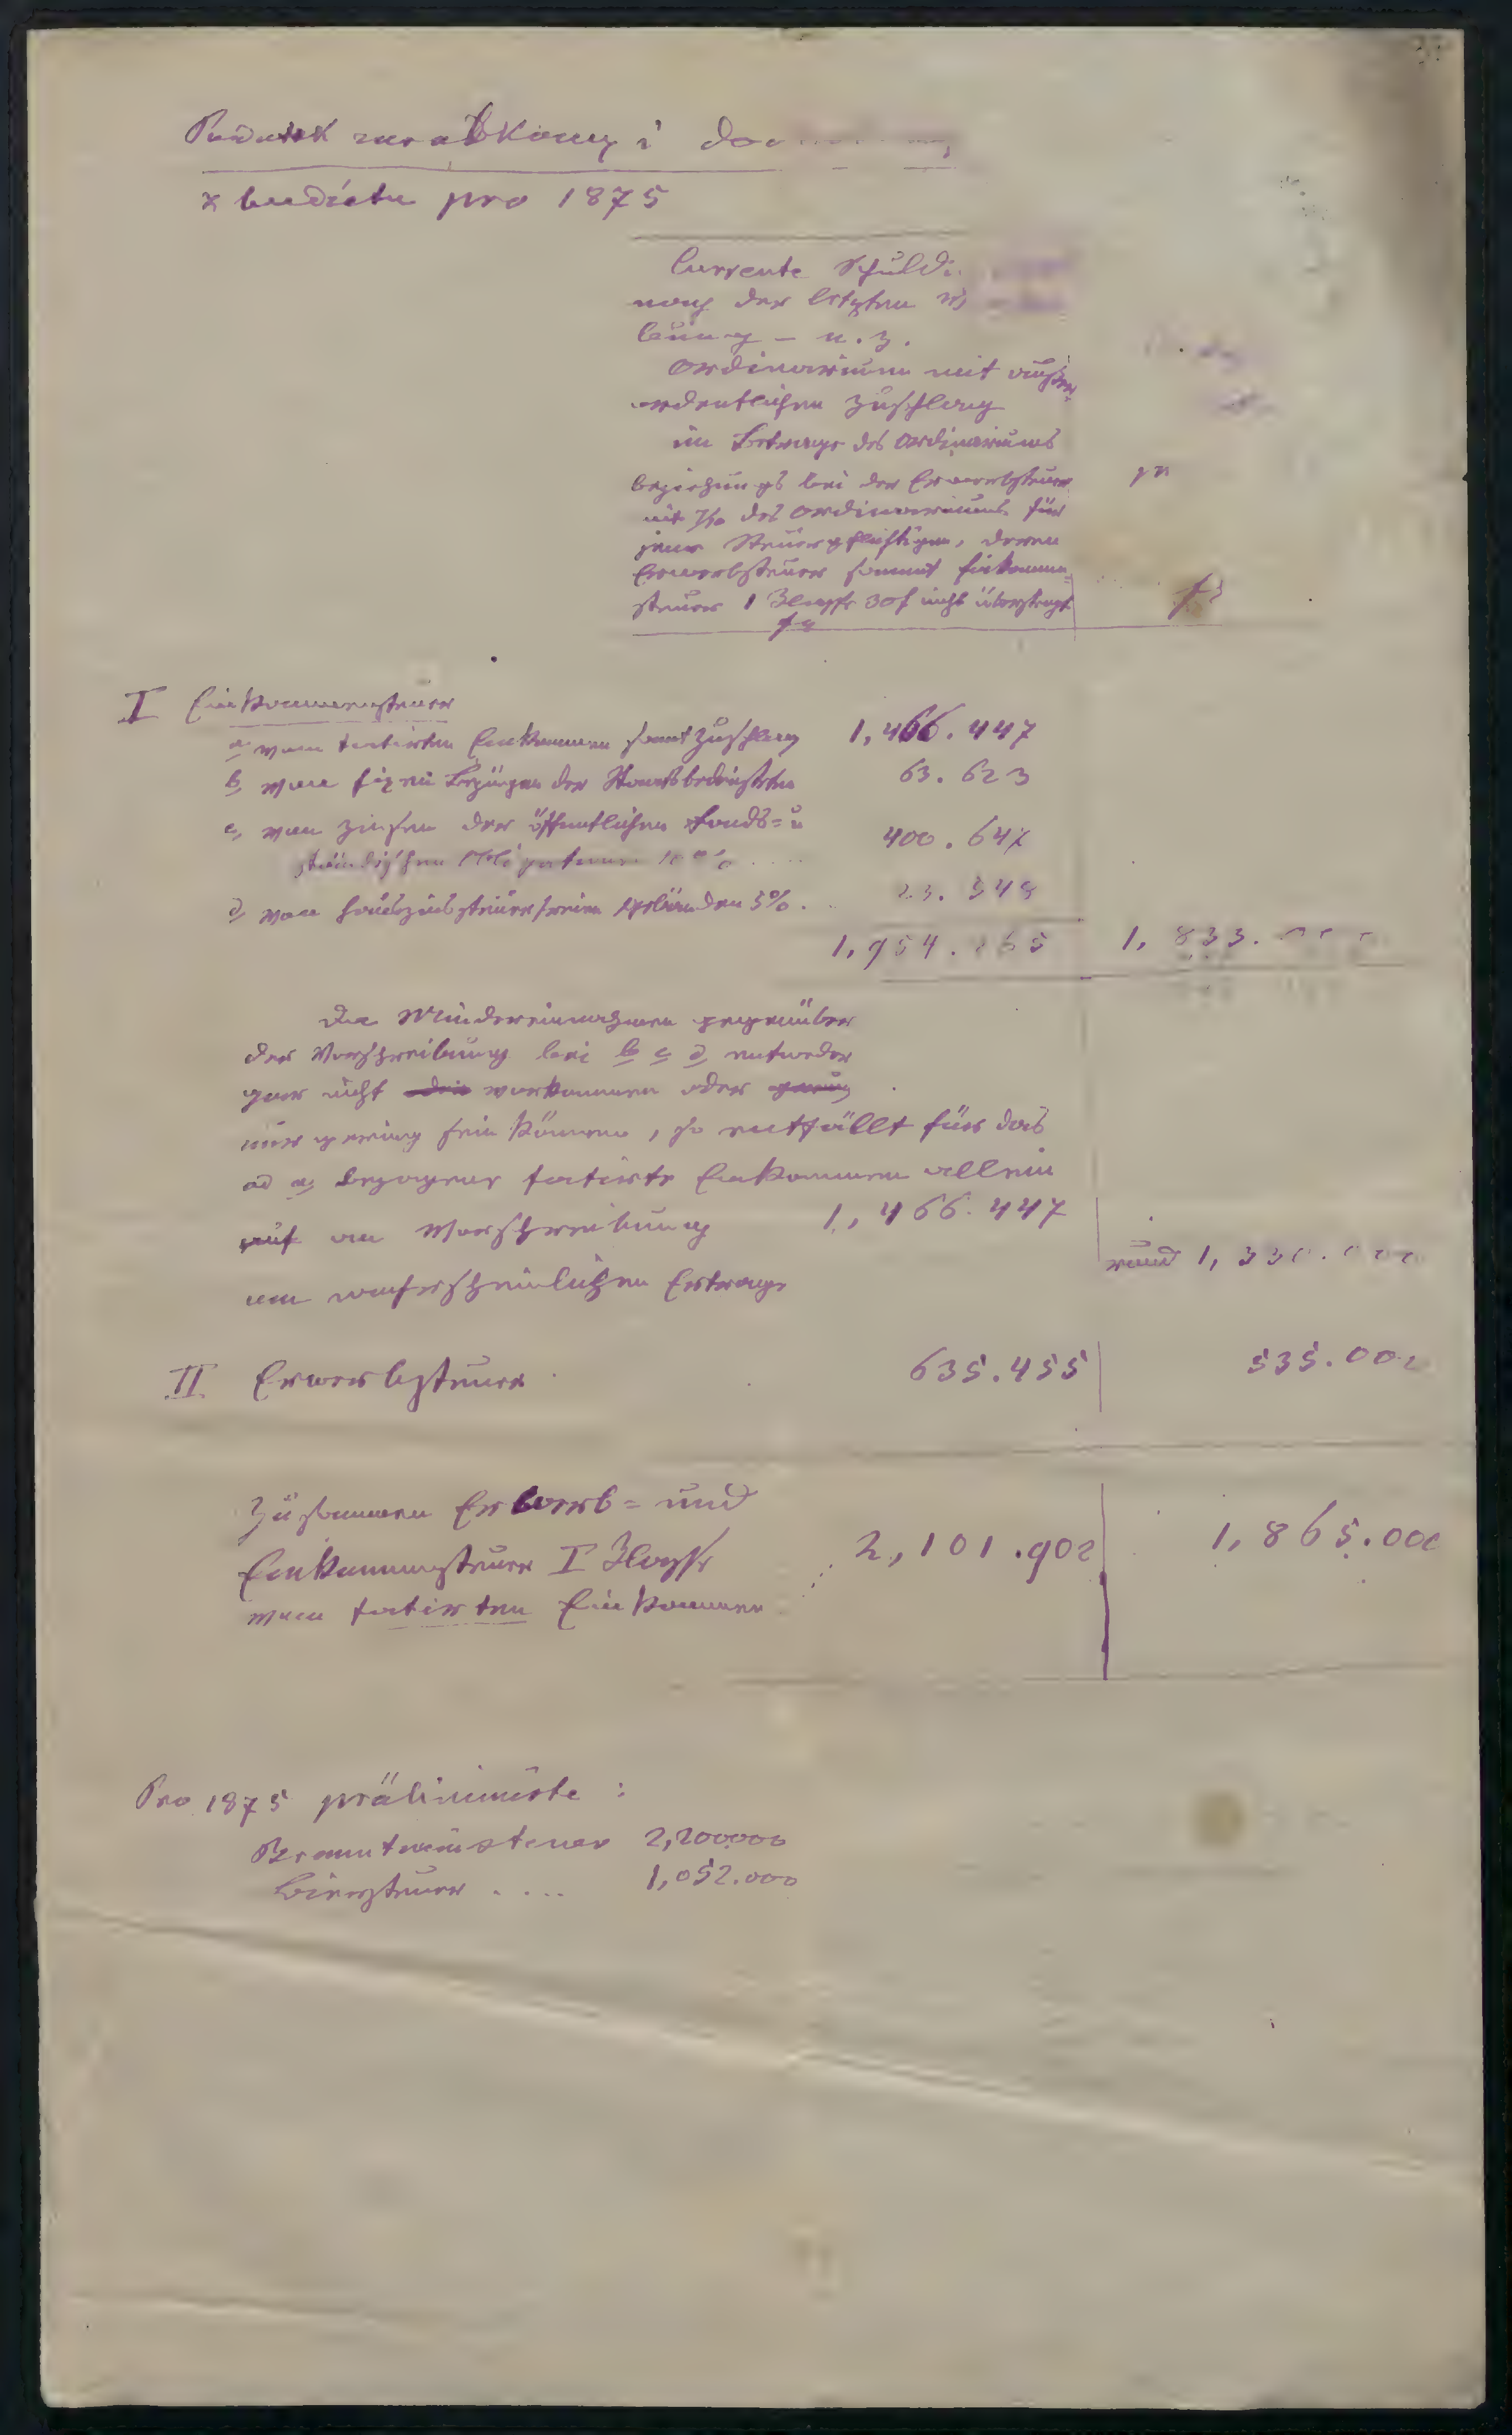 Podatek zarobkowy i do
z budżetu pro 1875
Currente Schuld
nach der letzten
bung – u. z.
Ordinarium mit außer
ordentlichen Zuschlag
im Betrage des Ordinariums
beziehungs bei der Erwerbsteuer
mit 7/10 des Ordinariums für
jene Steuerpflichtigen, deren
Erwerbsteuer sammt Einkommen=
steuer I 30 f nicht übersteigt
I Einkommensteuer
a, vom fatirten Einkommen sammt Zuschlag 1,466.447
b, von fixen Bezügen der Staatsbediensteten 63.623
c, von Zinsen der öffentlichen Fonds= u
ständischen Obligationen 10% 400.647
d, von hauszinssteuerfreien Gebäuden 5% . . 23.348
1,954.065 1,833.000
Da Mindereinnahmen gegenüber
der Vorschreibung bei b c d, entweder
gar nicht vorkommen oder
nur gering sein können, so entfällt für das
ad a, bezogene fatirte Einkommen allein
an Vorschreibung 1,466.447
am wahrscheinlichen Ertrage rund 1,330.000
II Erwerbsteuer 635.455 535.000
Zusammen Erwerb= und
Einkommensteuer I 2,101.902 1,865.000
vom fatirten Einkommen
Pro 1875 präliminirte :
Branntweinsteuer 2,200000
Biersteuer . . . . 1,052.000